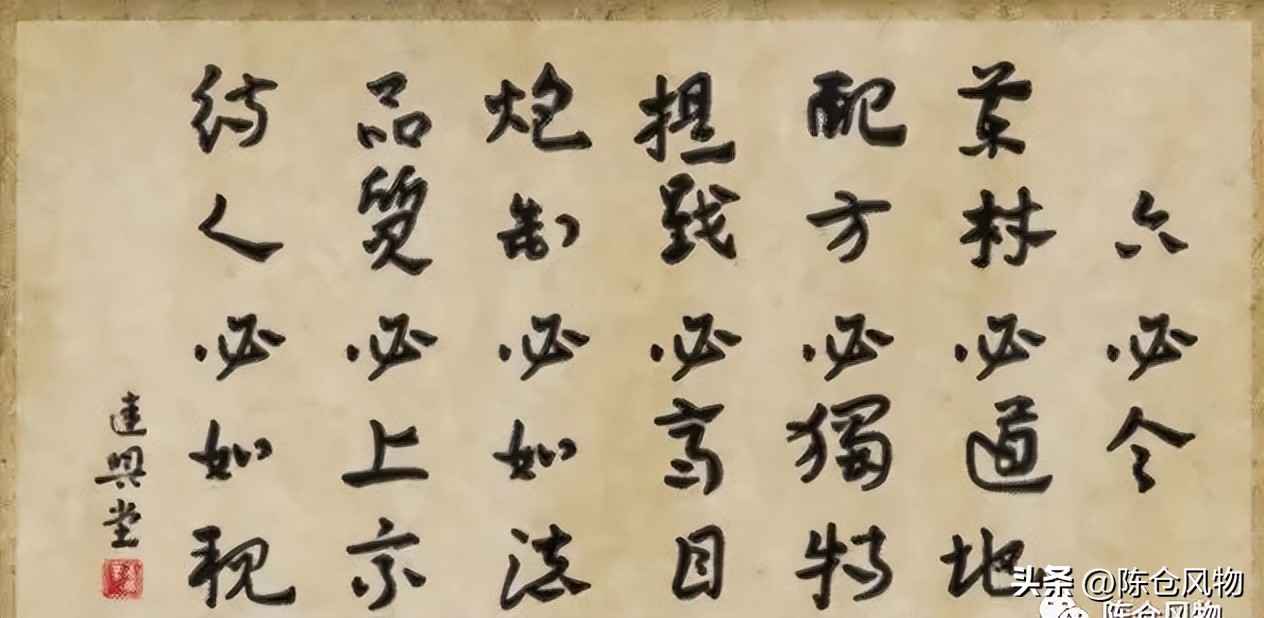 六必令
藥材必道地
配方必獨特
担戥必高目
炮制必如法
品質必上
待人必如親
達興堂
头条 @陈仓风物
陈仓风物